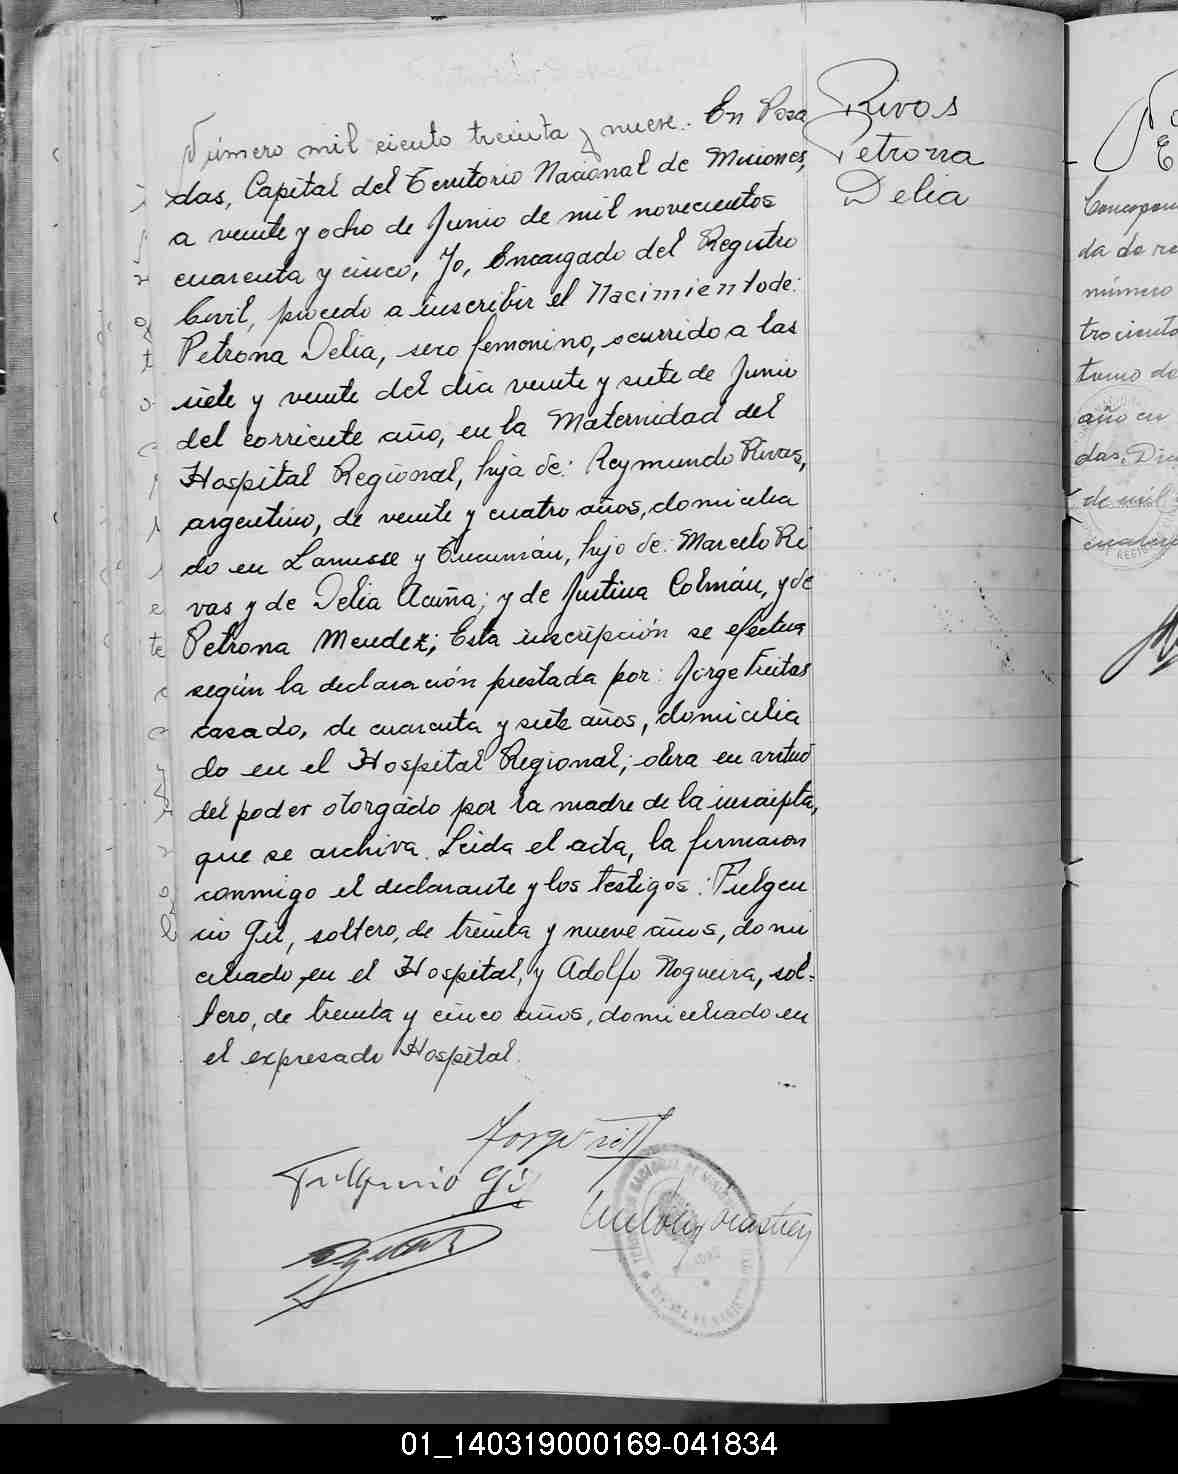 Número mil ciento treinta y nueve. En Posa
das, Capital del Territorio Nacional de Misiones,
a veinte y ocho de Junio de mil novecientos
cuarenta y cinco, Yo, Encargado del Registro
Civil, procedo a inscribir el Nacimiento de:
Petrona Delia, sexo femenino, ocurrido a las
siete y veinte del día veinte y siete de Junio
del corriente año, en la Maternidad del
Hospital Regional, hija de: Reymundo Rivas,
argentino, de veinte y cuatro años, domicilia
do en Lanusse y Tucumán, hijo de: Marcelo Ri
vas y de Delia Acuña; y de Justina Colmán, y de
Petrona Mendez; Esta inscripción se efectua
según la declaración prestada por: Jorge Freitas
casado, de cuarenta y siete años, domicilia
do en el Hospital Regional; obra en virtud
del poder otorgado por la madre de la inscripta,
que se archiva. Leida el acta, la firmaron
conmigo el declarante y los testigos: Fulgen
cio Gil, soltero, de treinta y nueve años, domi
ciliado en el Hospital, y Adolfo Nogueira, sol-
tero, de treinta y cinco años, domiciliado en
el expresado Hospital.
Rivas
Petrona
Delia
Fulgencio Gil
da de
número
trocient
turno de
año en
das, 
de mil
01_140319000169-041834